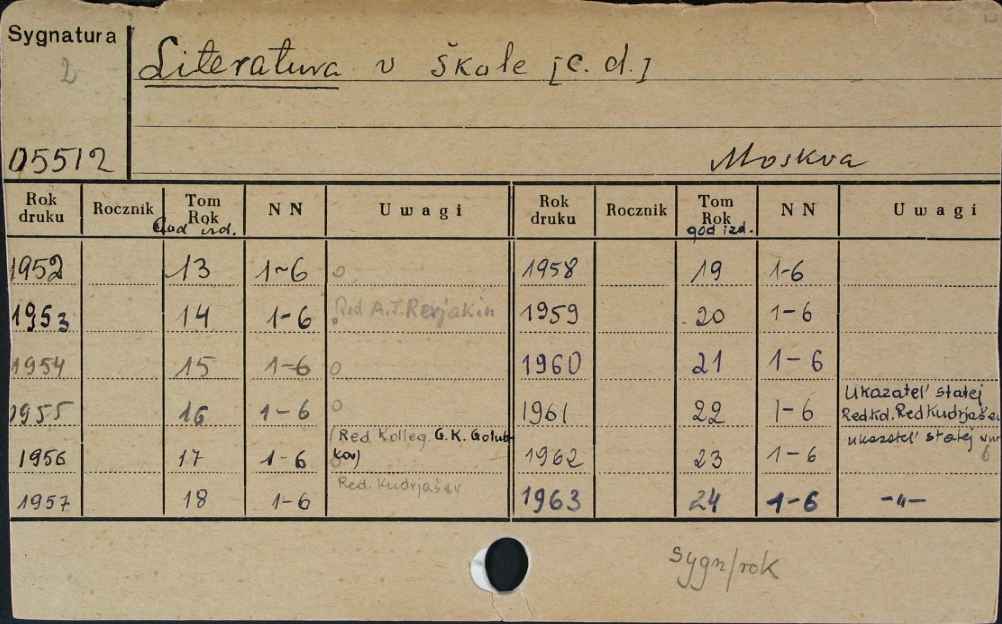 Sygnatura
2
05512
Literatura v škole [c. d.]
Moskva
Rok druku Rocznik Tom Rok N N Uwagi Rok druku Rocznik Tom Rok N N Uwagi
God izd. god izd.
1952 13 1-6 o 1958 19 1-6
1953 14 1-6 Red A.I. Revjakin 1959 20 1-6
1954 15 1-6 o 1960 21 1-6
1955 16 1-6 o 1961 22 1-6 Ukazatel' statej
Red Kol. Red Kudrjašev
1956 17 1-6 (Red Kolleg. G.K. Golubkov) 1962 23 1-6 ukazatel' statej v nr 6
1957 18 1-6 Red. Kudrjašev 1963 24 1-6 -"-
sygn/rok